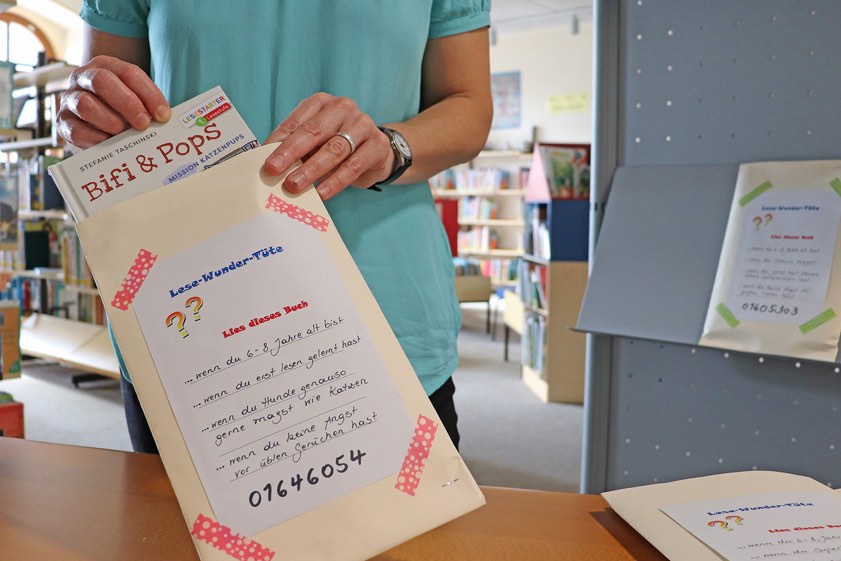 LESESTARTER
1. Lesestufe
STEFANIE TASCHINSKI
Bifi & PopS
MISSION KATZENPUPS
Lese-Wunder-Tüte
??
Lies dieses Buch
...wenn du 6-8 Jahre alt bist
...wenn du erst lesen gelernt hast
...wenn du Hunde genauso
gerne magst wie Katzen
...wenn du keine Angst
vor üblen Gerüchen hast
01646054
Lese-Wunder-Tüte
??
Lies dieses Buch
01605303
Lese-Wunder-Tüte
??
Lies dieses Buch
...wenn du 6-8 Jahre alt bist
...wenn du